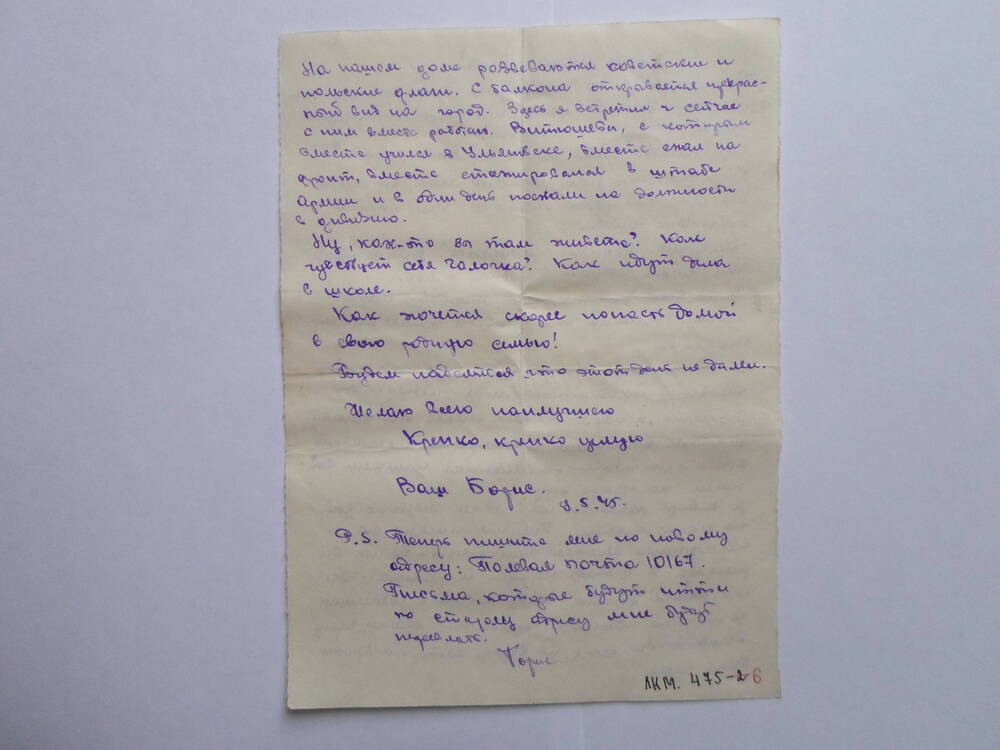 На нашем доме развеваются советские и
польские флаги. С балкона открывается прекрас-
ный вид на город. Здесь я встретил и сейчас
с ним вместе работаю. Витюшеви, с которым
вместе учился в Ульяновске, вместе ехал на
фронт, вместе стажировался в штабе
Армии и в один день поехали на должности
в дивизию.
Ну, как-то вы там живете? Как
чувствует себя Галочка? Как идут дела
в школе.
Как хочется скорее попасть домой
в свою родную семью!
Будем надеятся что этот день не далек.
Желаю всего наилучшего
Крепко, крепко целую
Ваш Борис.
5.45.
P.S. Теперь пишите мне по новому
адресу: Полевая почта 10167.
Письма, которые будут итти
по старому адресу мне будут
пересылать.
Борис
ЛКМ. 475-26